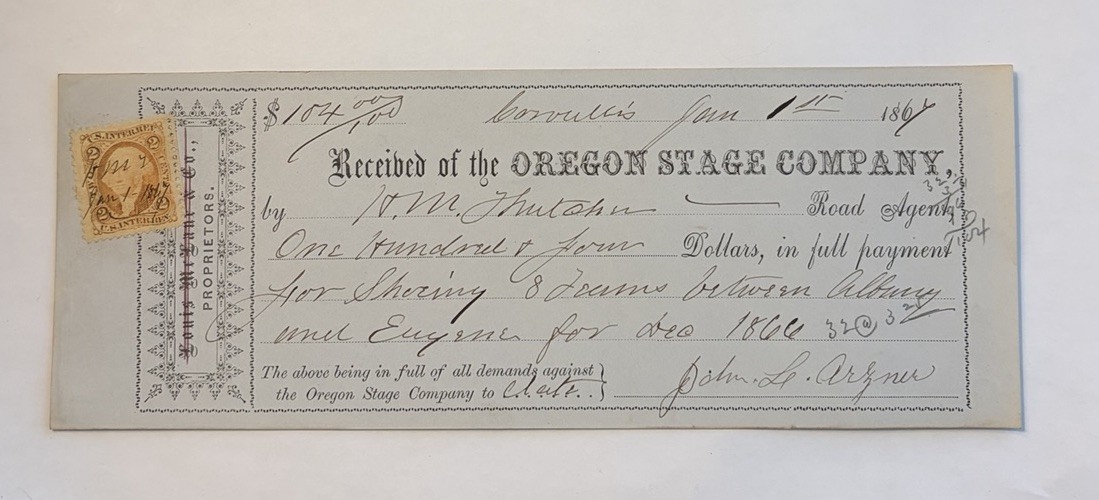 $104 00/100 Corvallis Jan 1st 1867
Received of the OREGON STAGE COMPANY,
by H. M. Thatcher Road Agent,
One Hundred & four Dollars, in full payment
for Shoeing 8 Teams between Albany
and Eugene for Dec 1866 32 @ 3 25
The above being in full of all demands against
the Oregon Stage Company to date.
John. L. Arzner
Louis McLane & Co.,
PROPRIETORS.
U.S. INTER. REV.
2 2
Jan 1 1867
2 2
U.S. INTER. REV.